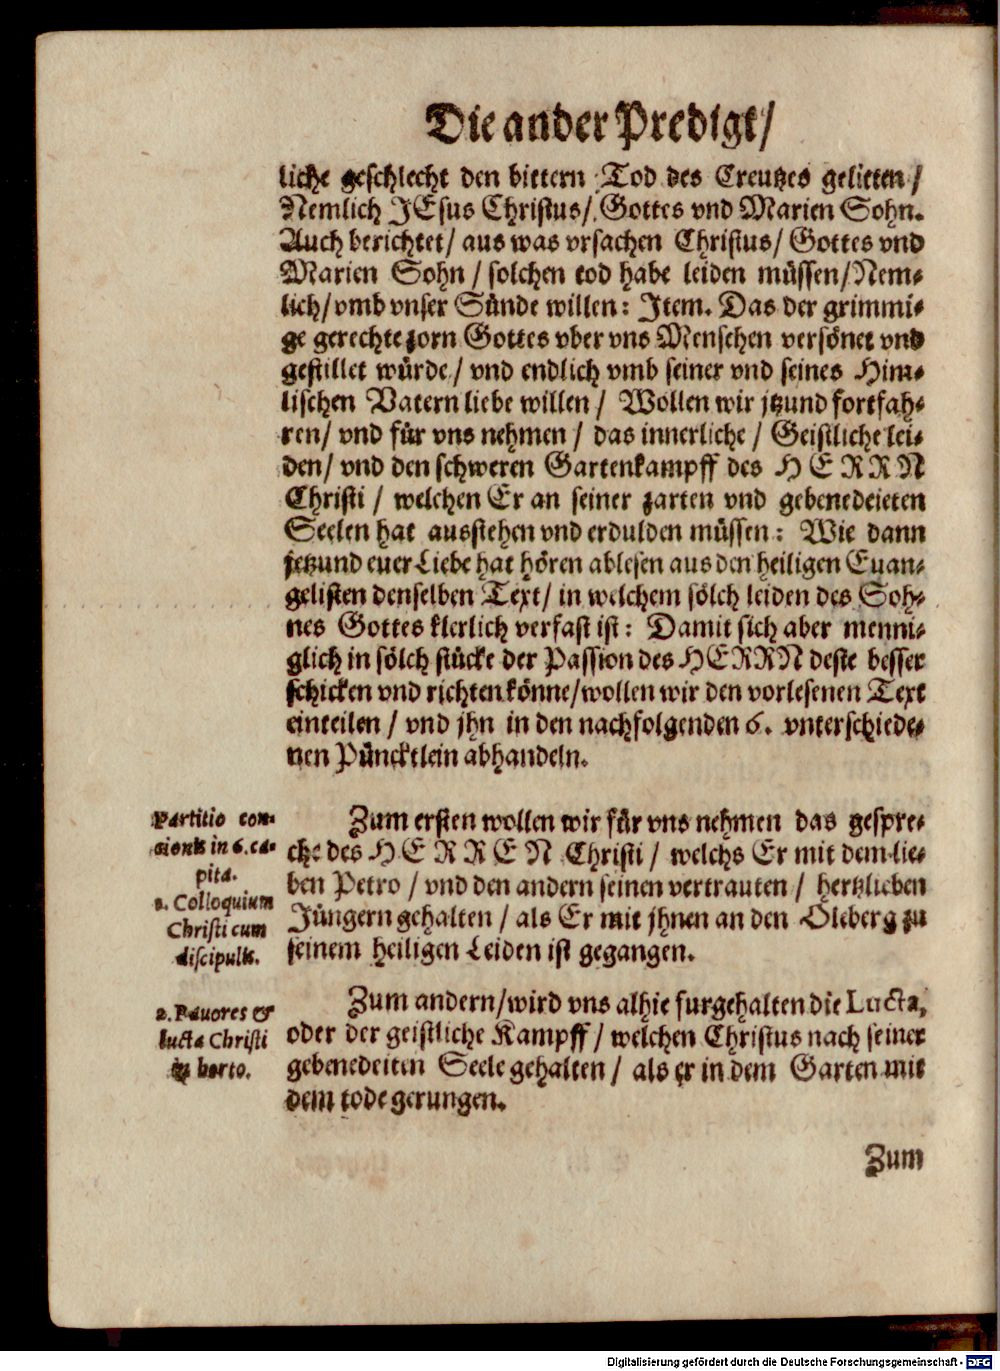 Die ander Predigt/
liche geschlecht den bittern Tod des Creutzes gelitten/
Nemlich JEsus Christus/ Gottes vnd Marien Sohn.
Auch berichtet/ aus was vrsachen Christus/ Gottes vnd
Marien Sohn/ solchen tod habe leiden müssen/ Nem-
lich/ vmb vnser Sünde willen: Item. Das der grimmi-
ge gerechte zorn Gottes vber vns Menschen versönet vnd
gestillet würde/ vnd endlich vmb seiner vnd seines Him-
lischen Vatern liebe willen/ Wollen wir jtzund fortfah-
ren/ vnd für vns nehmen/ das innerliche/ Geistliche lei-
den/ vnd den schweren Gartenkampff des HERRN
Christi/ welchen Er an seiner zarten vnd gebenedeieten
Seelen hat ausstehen vnd erdulden müssen: Wie dann
jetzund euer Liebe hat hören ablesen aus den heiligen Euan-
gelisten denselben Text/ in welchem sölch leiden des Soh-
nes Gottes klerlich verfast ist: Damit sich aber menni-
glich in sölch stücke der Passion des HERRN deste besser
schicken vnd richten könne/ wollen wir den vorlesenen Text
einteilen/ vnd jhn in den nachfolgenden 6. vnterschiede-
nen Püncktlein abhandeln.
Partitio con-
cionis in 6. ca-
pita.
1. Colloquium
Christi cum
discipulis.
Zum ersten wollen wir für vns nehmen das gespre-
che des HERREN Christi/ welchs Er mit dem lie-
ben Petro/ vnd den andern seinen vertrauten/ hertzlieben
Jüngern gehalten/ als Er mit jhnen an den Oleberg zu
seinem heiligen Leiden ist gegangen.
2. Pauores &
lucta Christi
in horto.
Zum andern/ wird vns alhie furgehalten die Lucta,
oder der geistliche Kampff/ welchen Christus nach seiner
gebenedeiten Seele gehalten/ als er in dem Garten mit
dem tode gerungen.
Zum
Digitalisierung gefördert durch die Deutsche Forschungsgemeinschaft - DFG